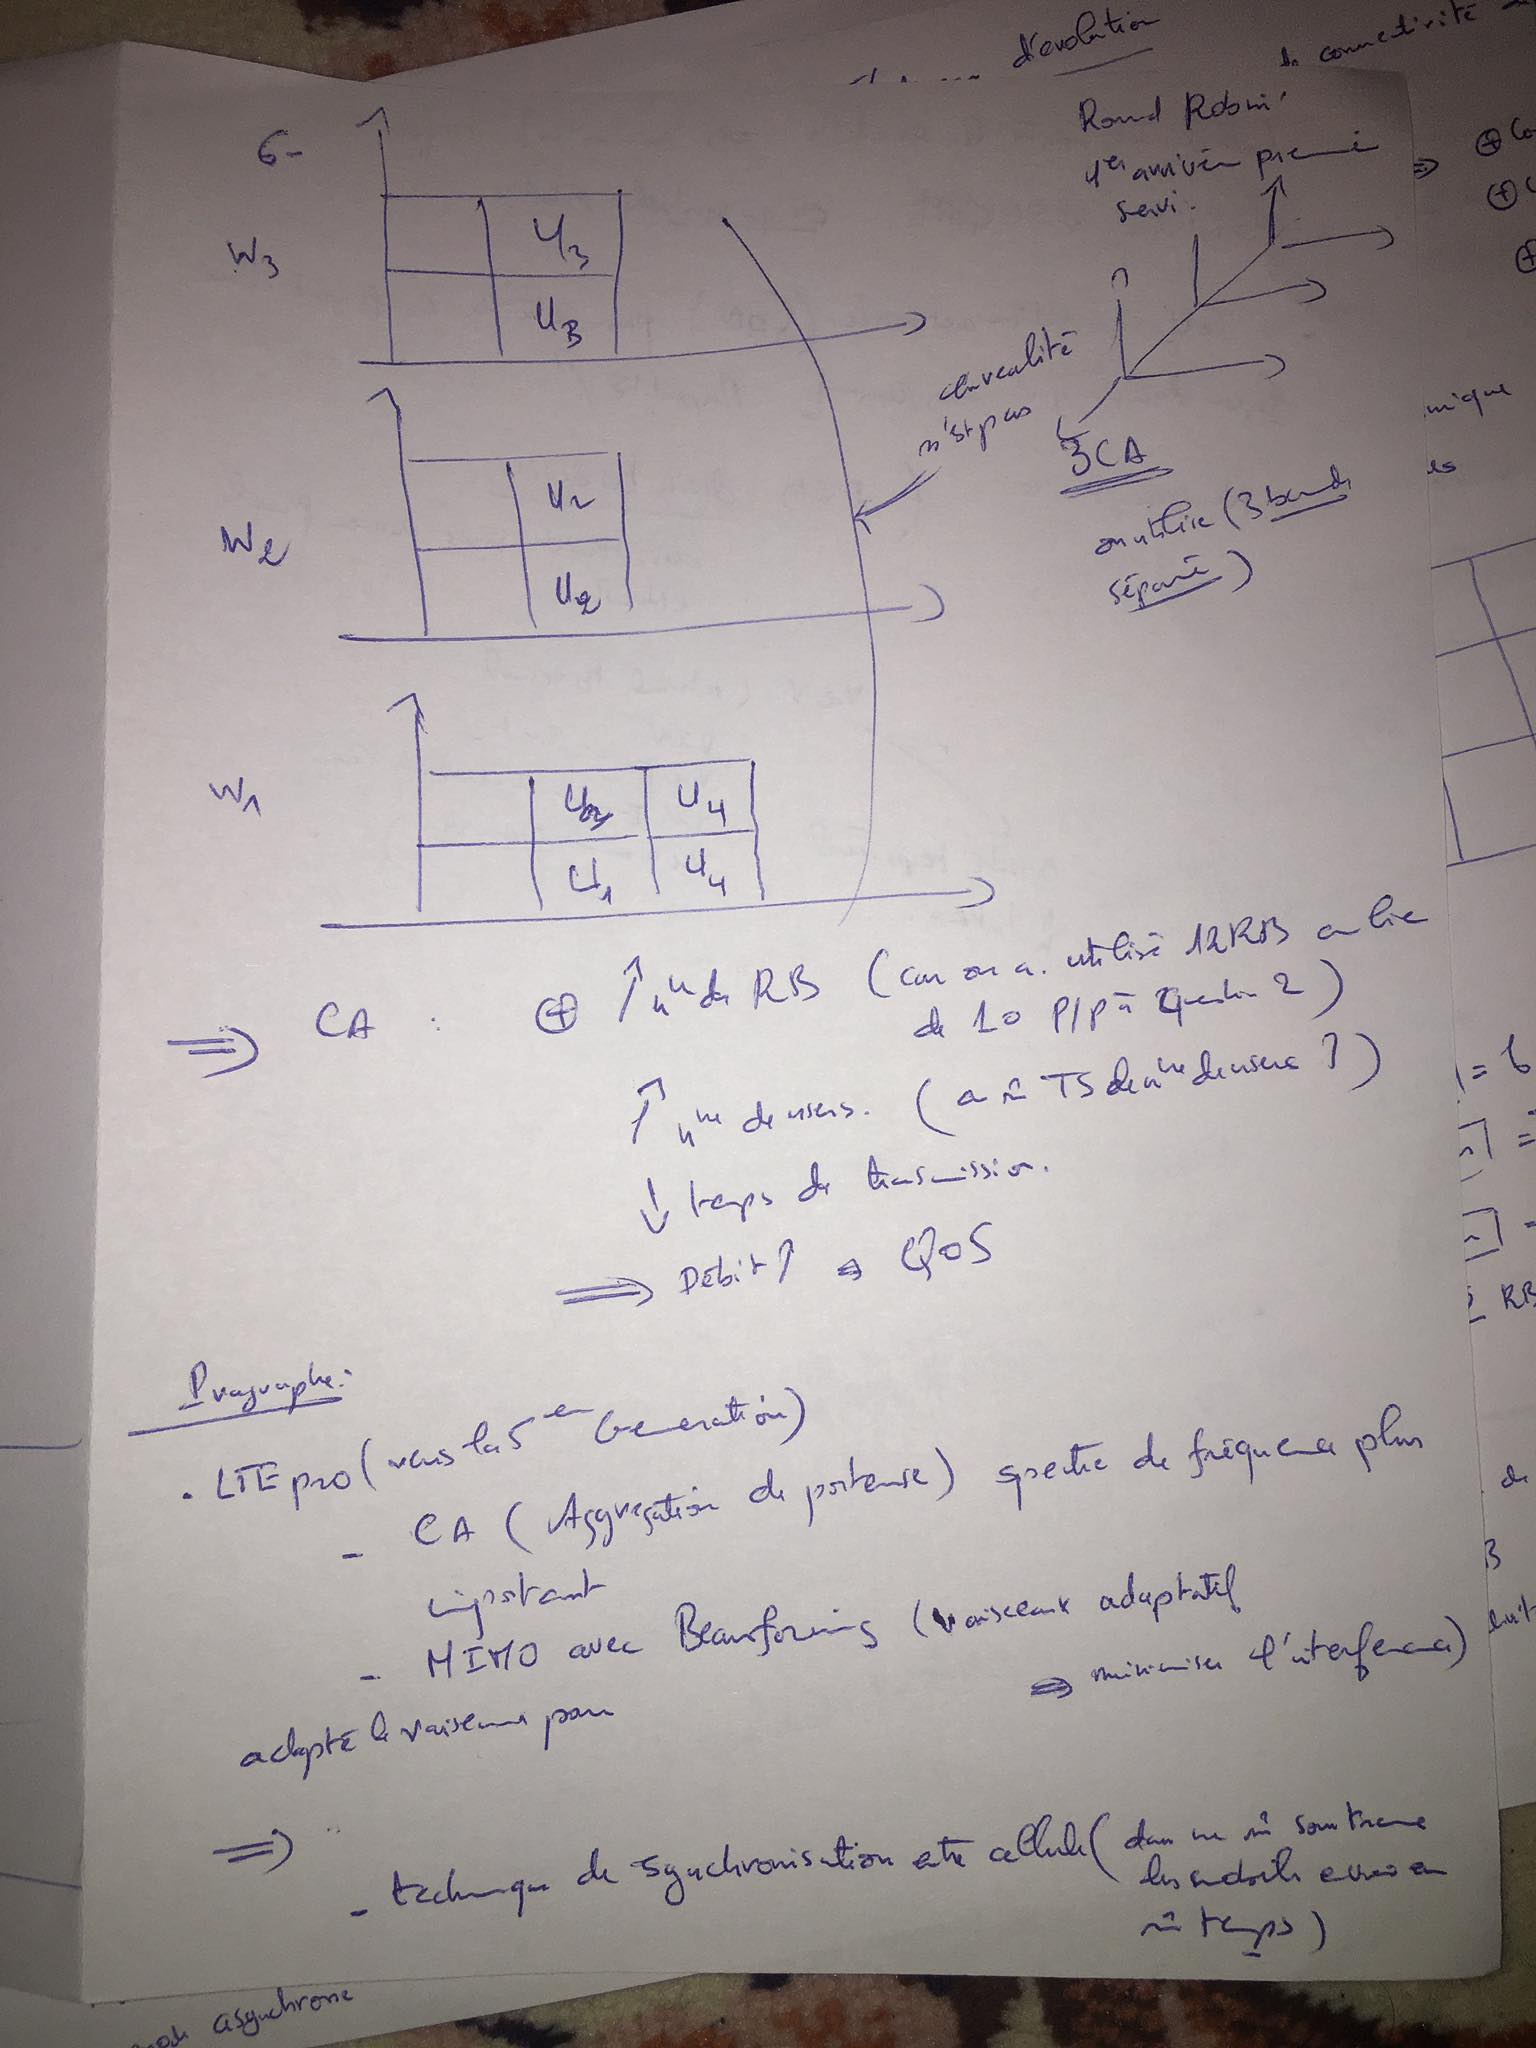 d'evolution
connectivité
Round Robin
1er arrivée premie
servi.
6-
W3
U3
U3
en realité
n'est pas
3CA
on utilise (3 bands
séparé)
W2
U2
U2
W1
U4
U1
U4
⇒ CA : ⊕ ↑ nbre de RB (car on a utilisé 12RB au lieu
de 10 P/p à Question 2)
↑ nbre de users. (a m̂ TS de nbre de users ↑)
↓ temps de transmission.
⇒ Débit ↑ ⇒ QoS
Pragraphe:
. LTE pro (vers la 5em Generation)
- CA (Aggregation de porteuse) spectre de fréquence plus
important
- MIMO avec Beamforming (vaisceaux adaptatif
⇒ minimiser l'interference)
adapté le vaisceaux pour
⇒
- technique de synchronisation entre cellule (dans une m̂ soustrame
les endroits
m̂ temps)
mique
RB
asynchrone